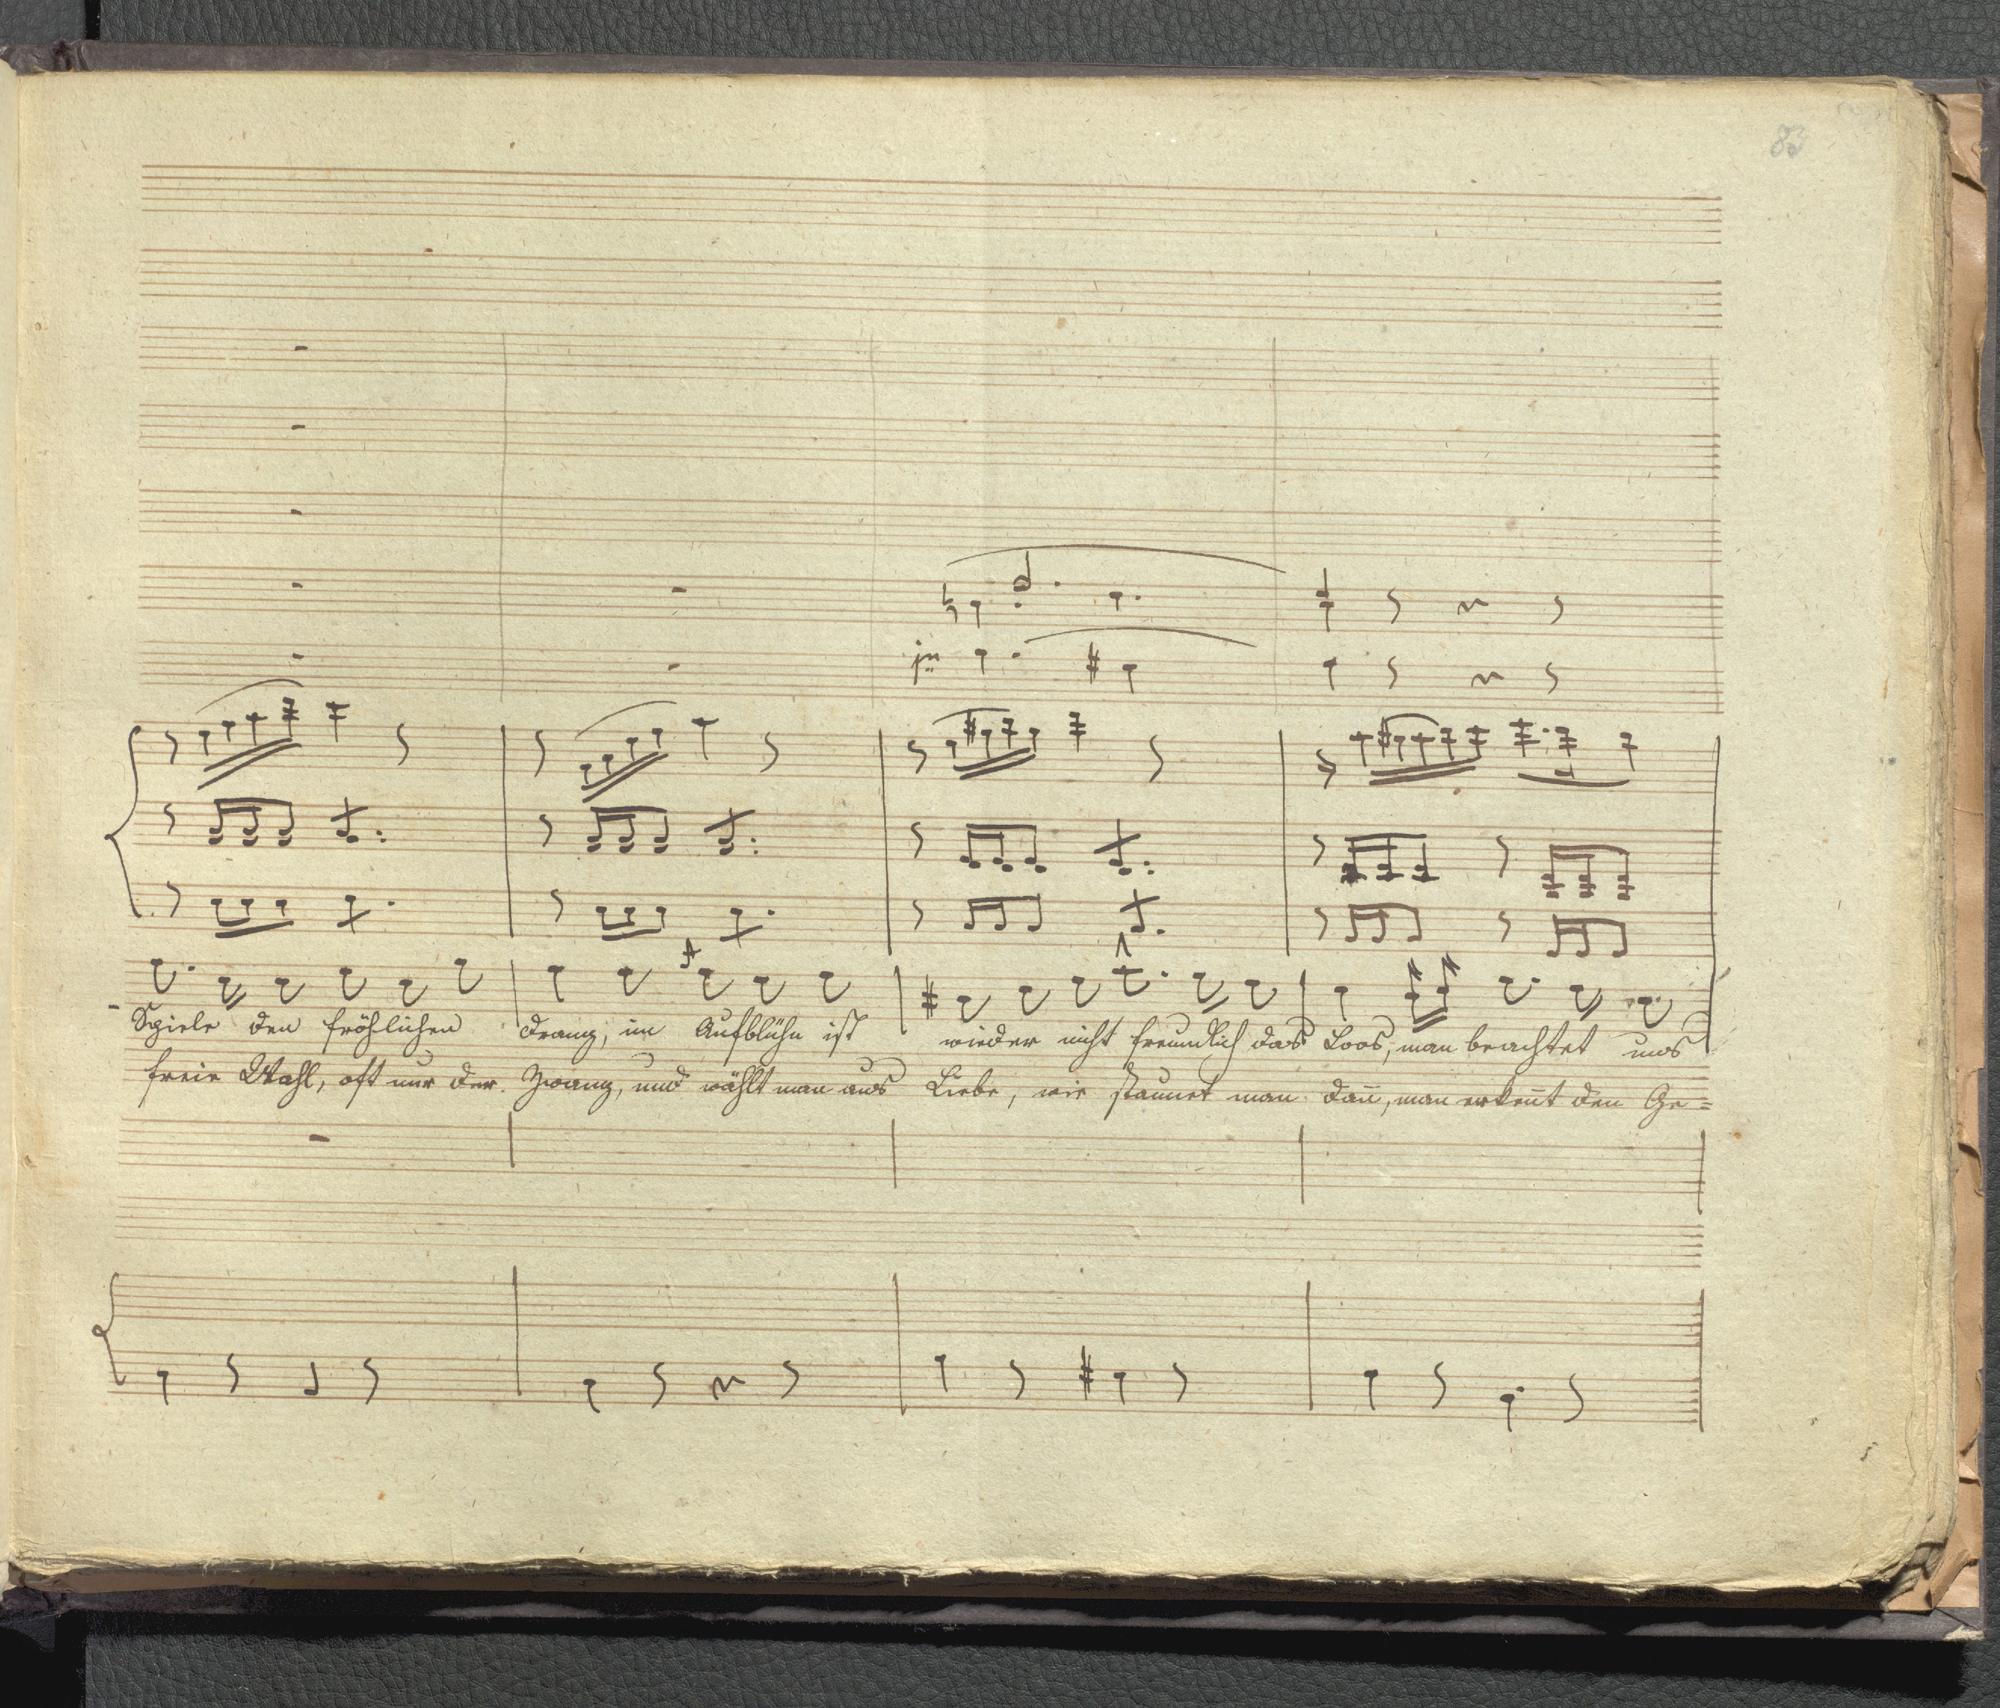 83
Spiele den fröhlichen Drang, im Aufblühn ist wieder nicht freundlich das Loos, man beachtet uns
freie Wahl, oft nur der Zwang, und wählt man aus Liebe, wie staunet man dañ, man erkeñt den Ge=